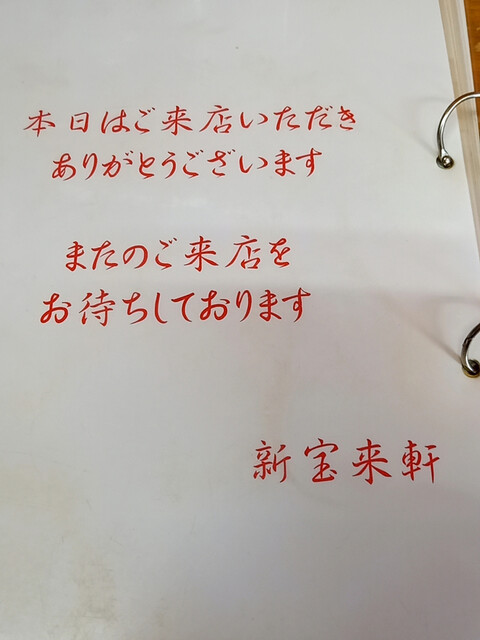 本日はご来店いただき
ありがとうございます
またのご来店を
お待ちしております
新宝来軒